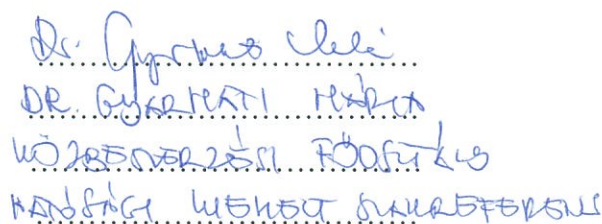 Dr. Gyarmati
DR. GYARMATI MÁRTA
KÖZBESZERZÉSI FŐOSZTÁLY
HATÓSÁGI KIEMELT SZAKREFERENS